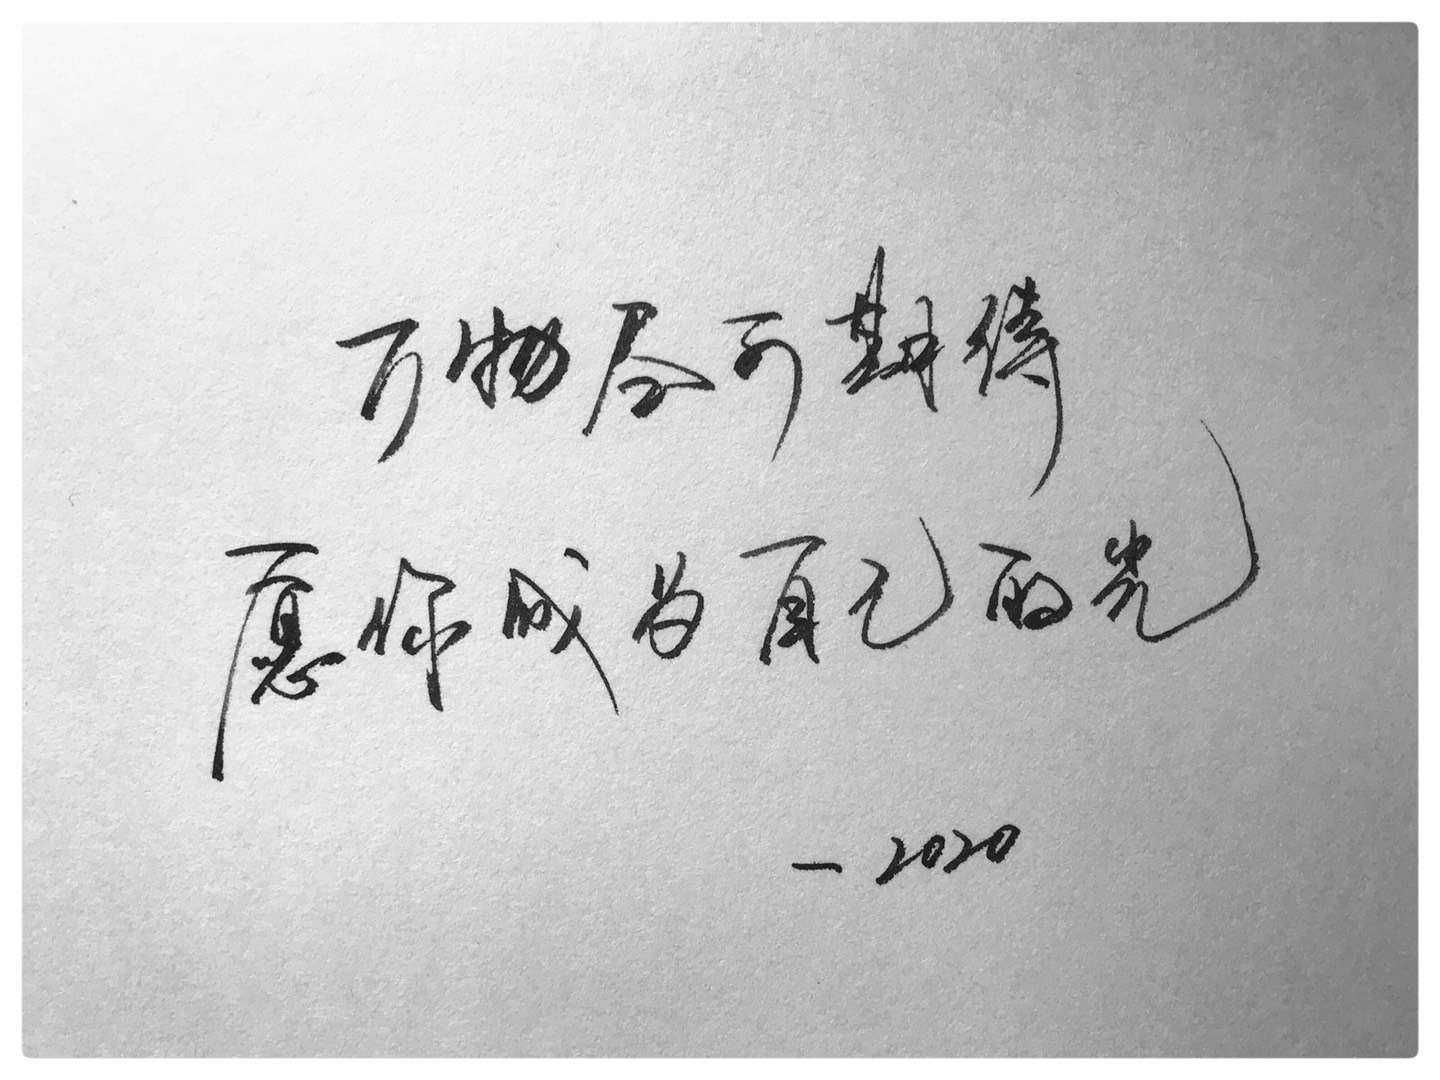 万物尽可期待
愿你成为自己的光
-2020